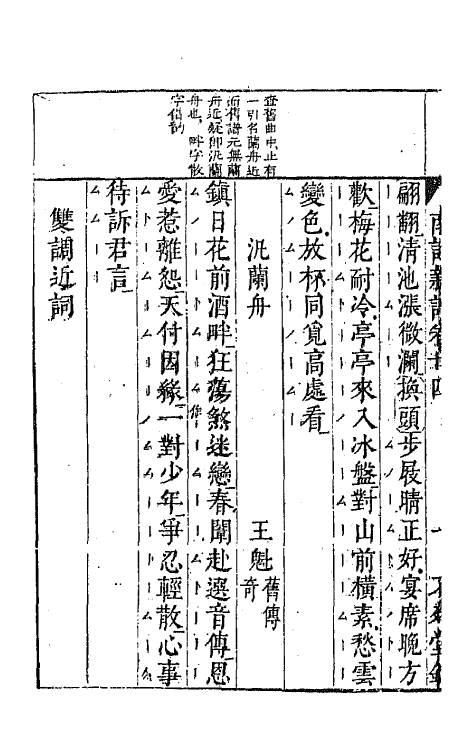 南詞新譜卷廿四 一
查舊曲中止有
一引名蘭舟近
而舊譜元無蘭
舟近疑即汎蘭
舟也。畔字散
字借韵
翩翻清池漲微瀾換頭步屐晴正好宴席晚方
歡梅花耐冷亭亭來入冰盤對山前橫素愁雲
變色放杯同覓高處看
汎蘭舟 王魁舊傳奇
鎮日花前酒畔狂蕩煞迷戀春闈赴選音傳恩
愛惹離怨天付因緣一對少年爭忍輕散心事
待訴君言
雙調近詞